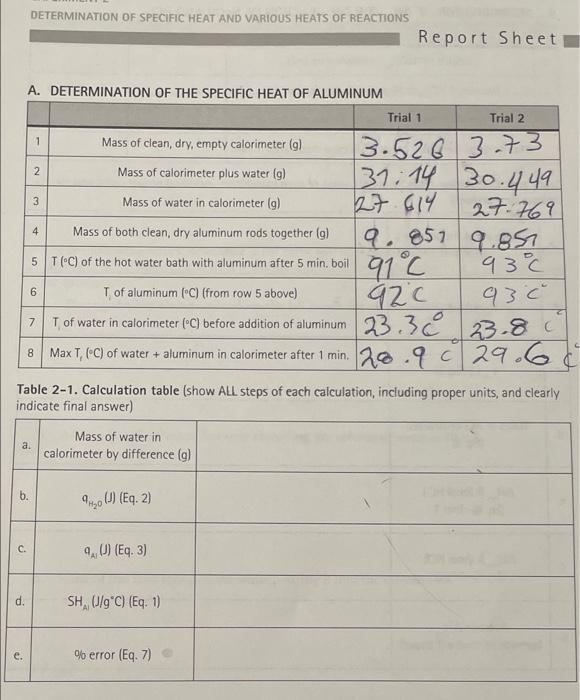 DETERMINATION OF SPECIFIC HEAT AND VARIOUS HEATS OF REACTIONS
Report Sheet
A. DETERMINATION OF THE SPECIFIC HEAT OF ALUMINUM
Trial 1 Trial 2
1 Mass of clean, dry, empty calorimeter (g) 3.526 3.73
2 Mass of calorimeter plus water (g) 31.14 30.449
3 Mass of water in calorimeter (g) 27.614 27.769
4 Mass of both clean, dry aluminum rods together (g) 9.851 9.851
5 T (°C) of the hot water bath with aluminum after 5 min. boil 91°C 93°C
6 Tᵢ of aluminum (°C) (from row 5 above) 92C 93C°
7 Tᵢ of water in calorimeter (°C) before addition of aluminum 23.3C° 23.8C°
8 Max T_f (°C) of water + aluminum in calorimeter after 1 min. 28.9C° 29.6C°
Table 2-1. Calculation table (show ALL steps of each calculation, including proper units, and clearly
indicate final answer)
a. Mass of water in
calorimeter by difference (g)
b. q_H₂O (J) (Eq. 2)
c. q_Al (J) (Eq. 3)
d. SH_Al (J/g°C) (Eq. 1)
e. % error (Eq. 7)